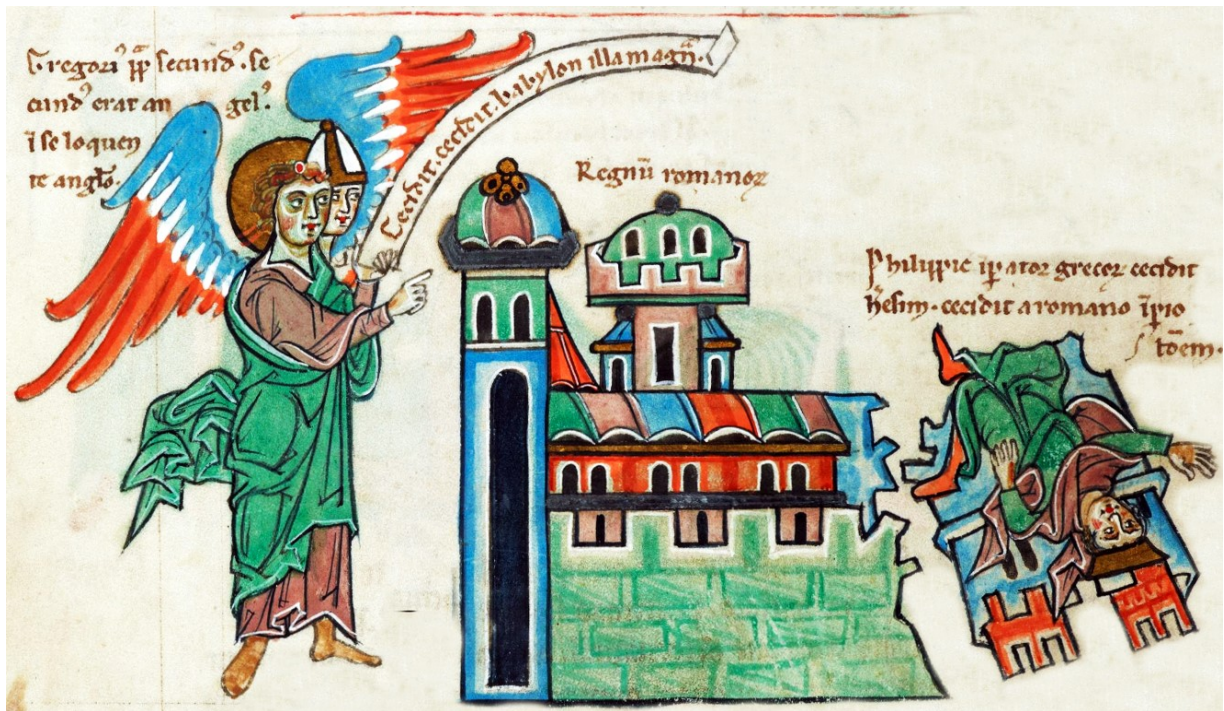 Gregori᾽ pp̄ secund᾽. se
cund᾽ erat an gel᾽.
ī se loquen
te angl̄o.
Cecidit. cecidit. babylon illa magn̄.
Regnū romanoꝝ
Philippic īpator grecoꝝ cecidit
cecidit a romano īpio